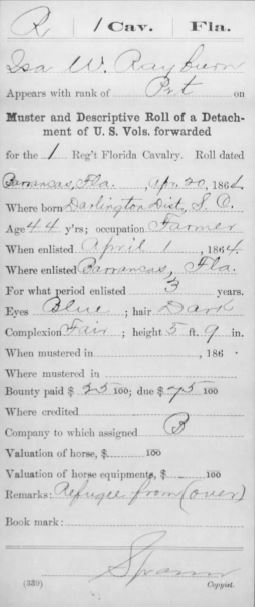 R | 1 Cav. | Fla.
Isa W. Rayburn
Appears with rank of Pvt on
Muster and Descriptive Roll of a Detach-
ment of U. S. Vols. forwarded
for the 1 Reg't Florida Cavalry. Roll dated
Barrancas, Fla. Apr. 20, 1864.
Where born Darlington Dist, S. C.
Age 44 y'rs; occupation Farmer
When enlisted April 1, 1864.
Where enlisted Barrancas, Fla.
For what period enlisted 3 years.
Eyes Blue; hair Dark
Complexion Fair; height 5 ft. 9 in.
When mustered in , 186 .
Where mustered in
Bounty paid $ 25 100; due $ 75 100
Where credited
Company to which assigned B
Valuation of horse, $ 100
Valuation of horse equipments, $ 100
Remarks: Refugee from (over)
Book mark:
Spann
(339) Copyist.